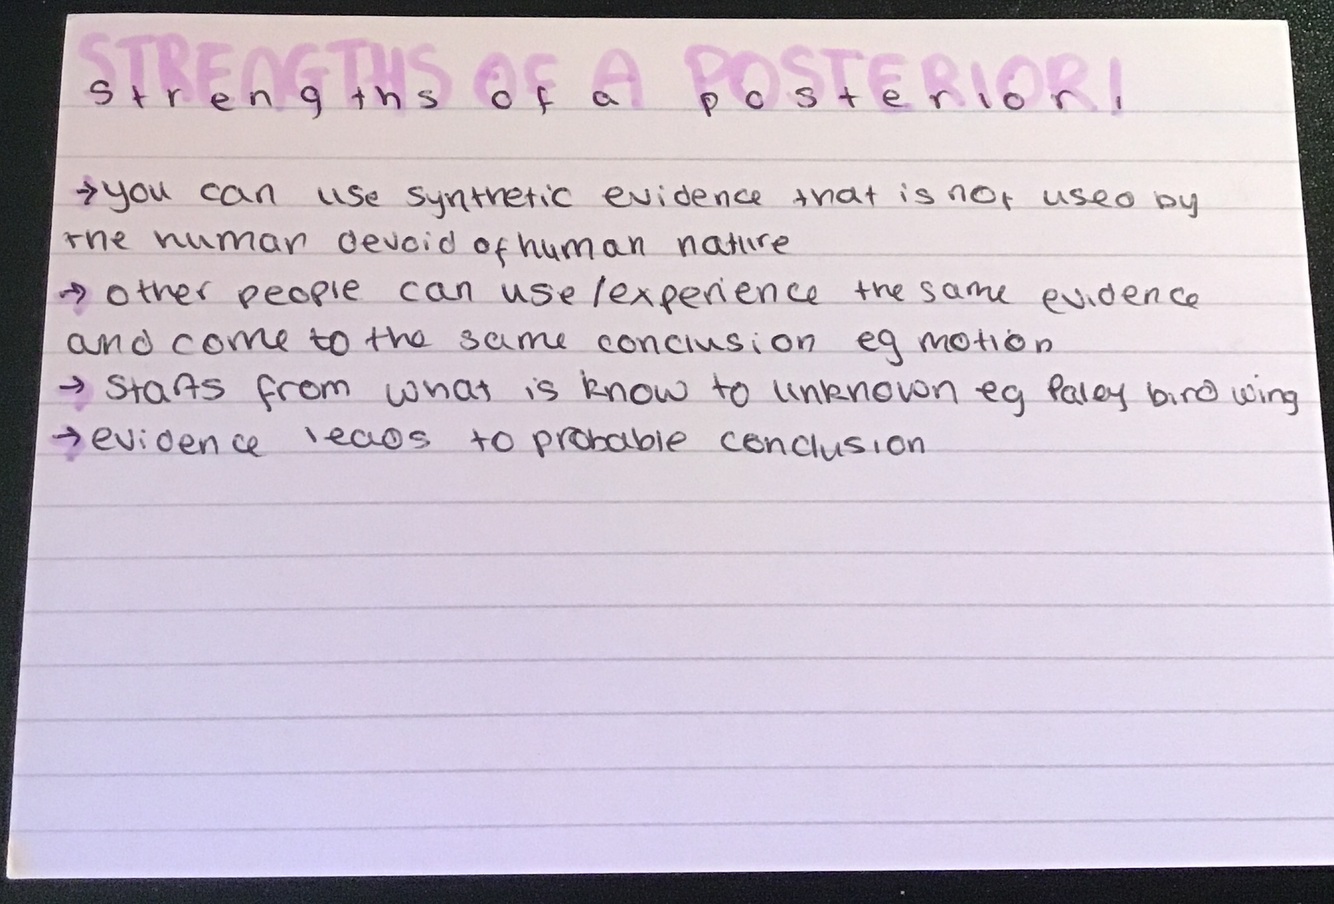 STRENGTHS OF A POSTERIORI
strengths of a posteriori
→you can use synthetic evidence that is not used by
the human devoid of human nature
→ other people can use/experience the same evidence
and come to the same conclusion eg motion
→ starts from what is know to unknown eg Paley bird wing
→evidence leads to probable conclusion